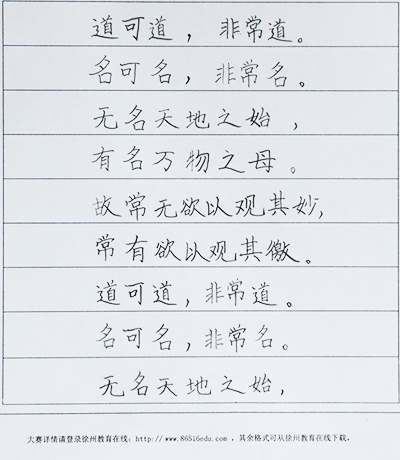 道可道，非常道。
名可名，非常名。
无名天地之始，
有名万物之母。
故常无欲以观其妙，
常有欲以观其徼。
道可道，非常道。
名可名，非常名。
无名天地之始，
大赛详情请登录徐州教育在线：http://www.86516edu.com ，其余格式可从徐州教育在线下载。